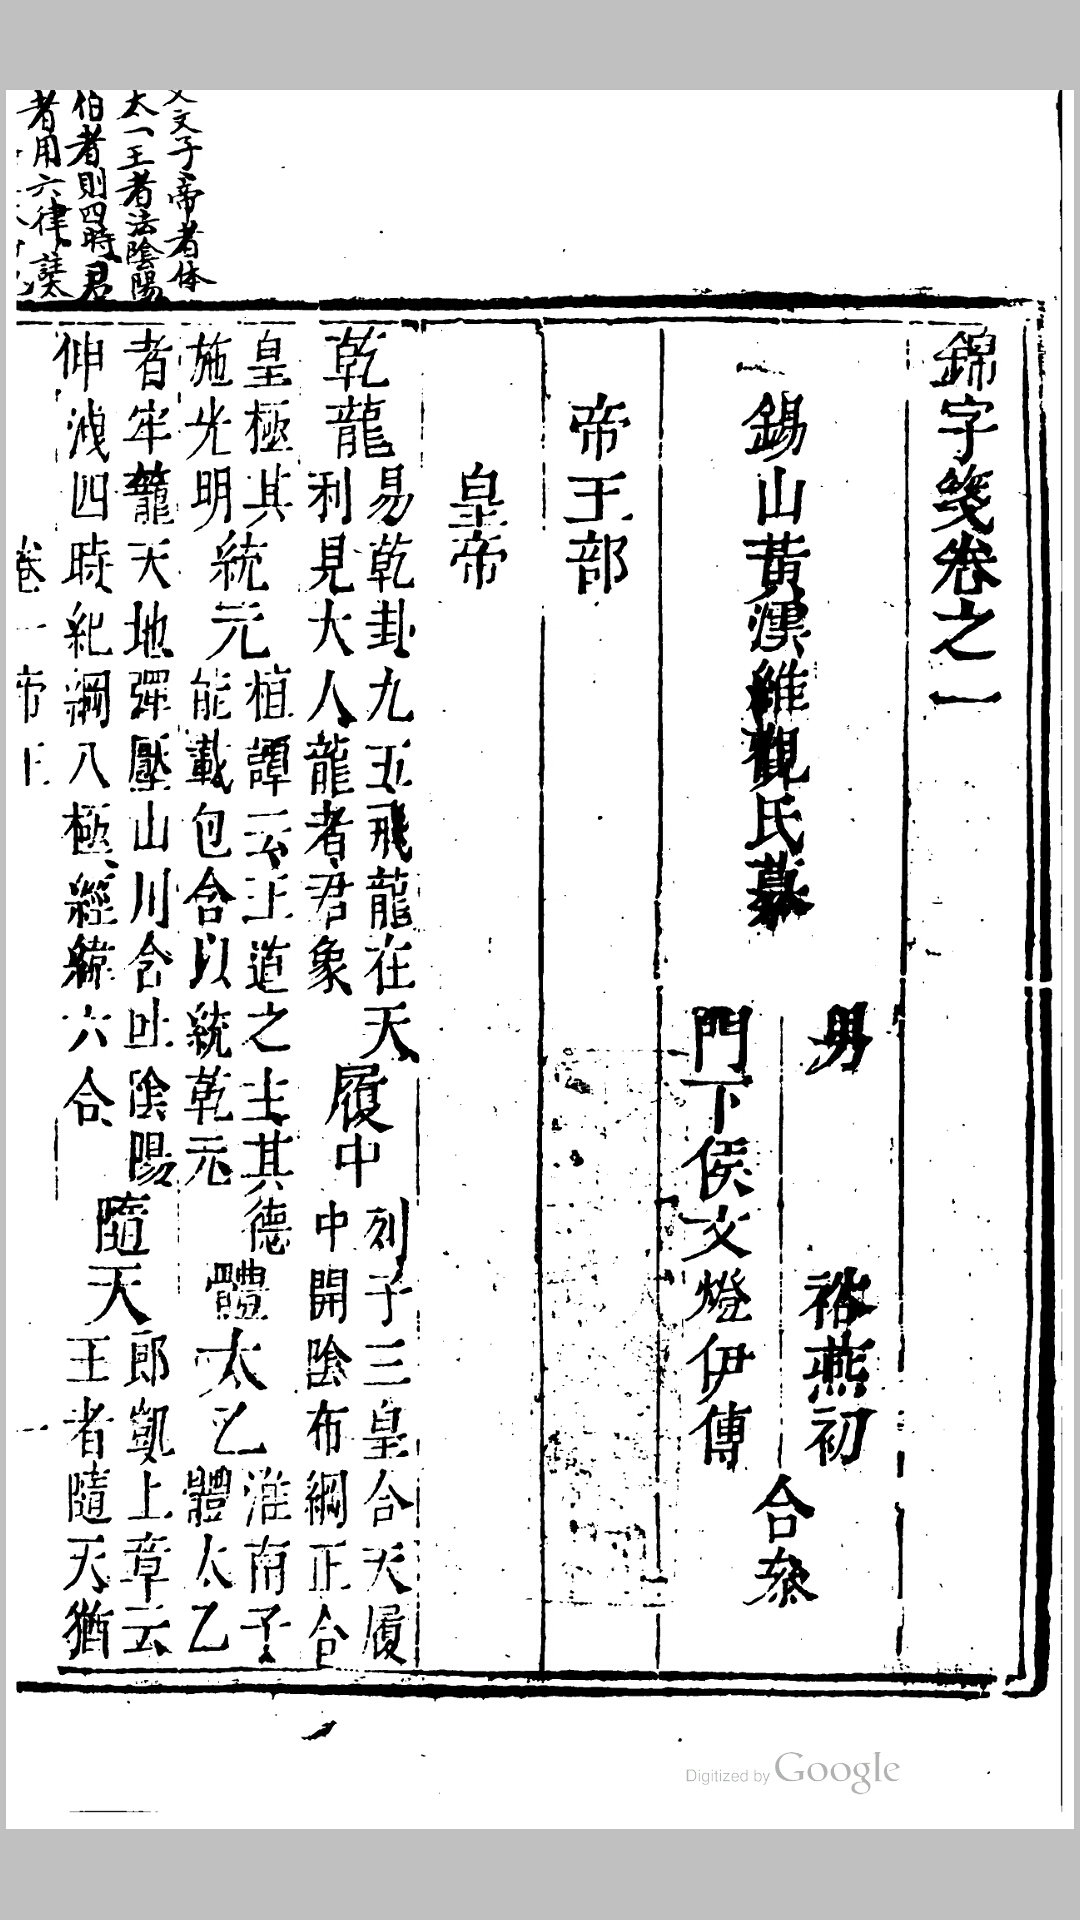 文子帝者体
太一王者法陰陽
伯者則四時君
者用六律
錦字箋卷之一
錫山黃澐維觀氏纂
男 裕燕初
門下侯文燈伊傳
合叅
帝王部
皇帝
乾龍 易乾卦九五飛龍在天
利見大人龍者君象
履中 列子三皇合天履
中開陰布綱正合
皇極其 統元 桓譚云王道之主其德
施光明 能載包含以統乾元
體太乙 淮南子
體太乙
者牢籠天地彈壓山川含吐陰陽
伸洩四時紀綱八極經緯六合
隨天 郎凱上章云
王者隨天猶
卷一 帝王
一
Digitized by Google